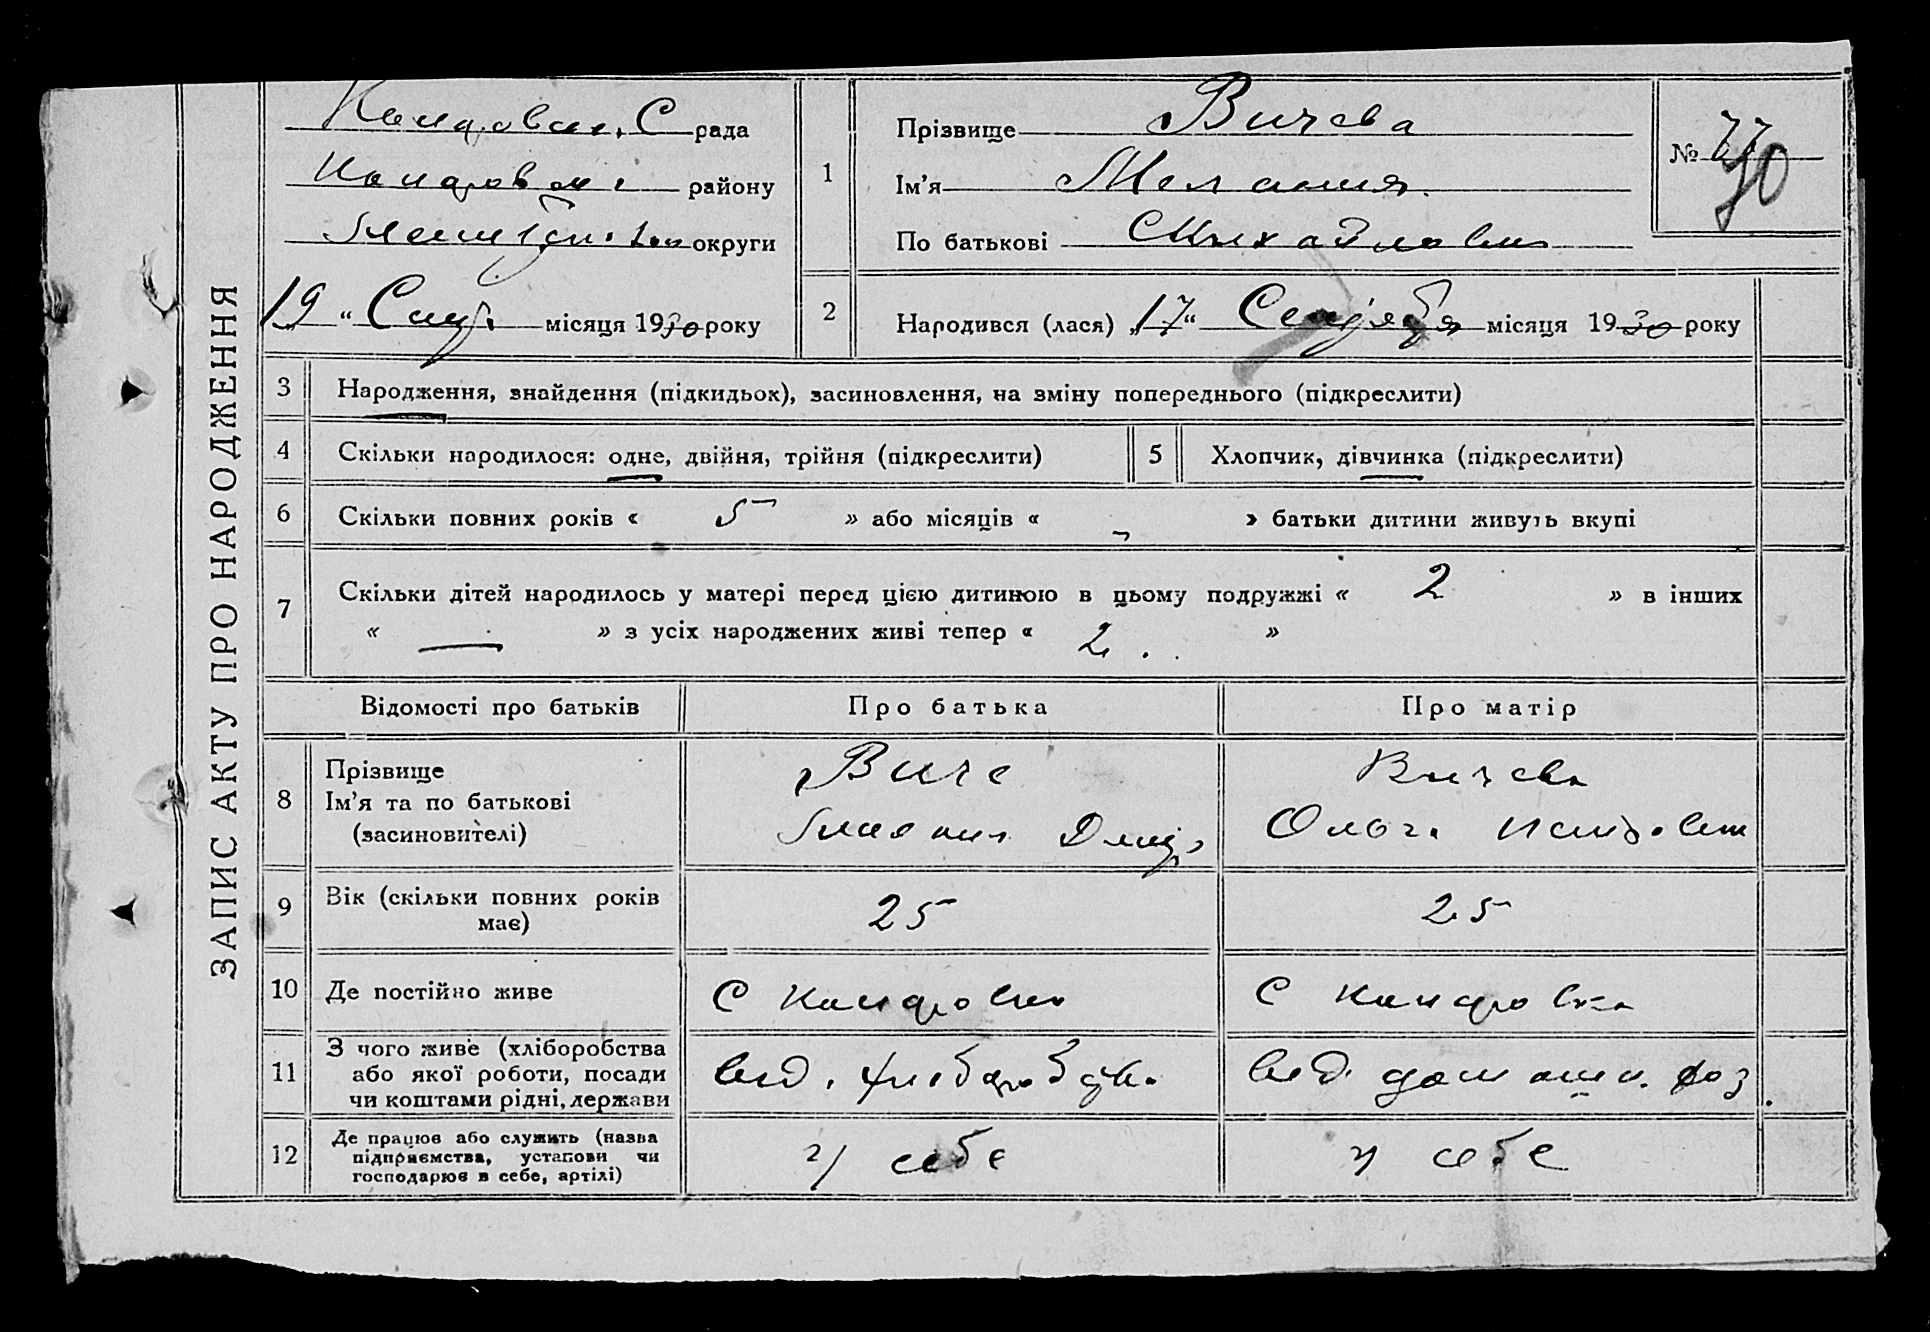 ЗАПИС АКТУ ПРО НАРОДЖЕННЯ
С рада
району
округи
„19“ місяця 1930 року
1
Прізвище Вичева
Ім’я Мелания
По батькові Михайловна
№ 77
70
2
Народився (лася) „17“ Сентября місяця 1930 року
3 Народження, знайдення (підкидьок), засиновлення, на зміну попереднього (підкреслити)
4 Скільки народилося: одне, двійня, трійня (підкреслити) 5 Хлопчик, дівчинка (підкреслити)
6 Скільки повних років « 5 » або місяців « - » батьки дитини живуть вкупі
7 Скільки дітей народилось у матері перед цією дитиною в цьому подружжі « 2 » в інших
« — » з усіх народжених живі тепер « 2 »
Відомості про батьків Про батька Про матір
8
Прізвище Виче Вичева
Ім’я та по батькові
(засиновителі)
Ольга
9 Вік (скільки повних років має) 25 25
10 Де постійно живе С Кандровка С Кандровка
11 З чого живе (хліборобства
або якої роботи, посади
чи коштами рідні, держави
12 Де працює або служить (назва
підприємства, установи чи
господарює в себе, артілі)
у себе у себе